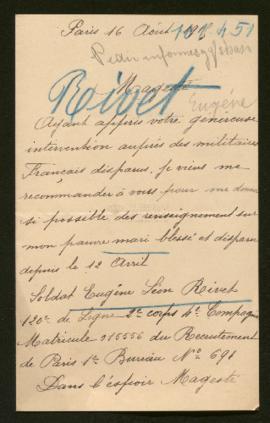 Paris 16 Août
Rivet
Eugène
Magesté
Ayant appris votre généreuse
intervention auprès des militaires
Français disparus, je viens me
recommander à vous pour me donner
si possible des renseignement sur
mon pauvre mari blessé et disparu
depuis le 12 Avril
Soldat Eugène Léon Rivet
120e de Ligne 2e corps 4e Compagnie
Matricule du Recrutement
de Paris 1e Bureau No 691
Dans l'éspoir Magesté